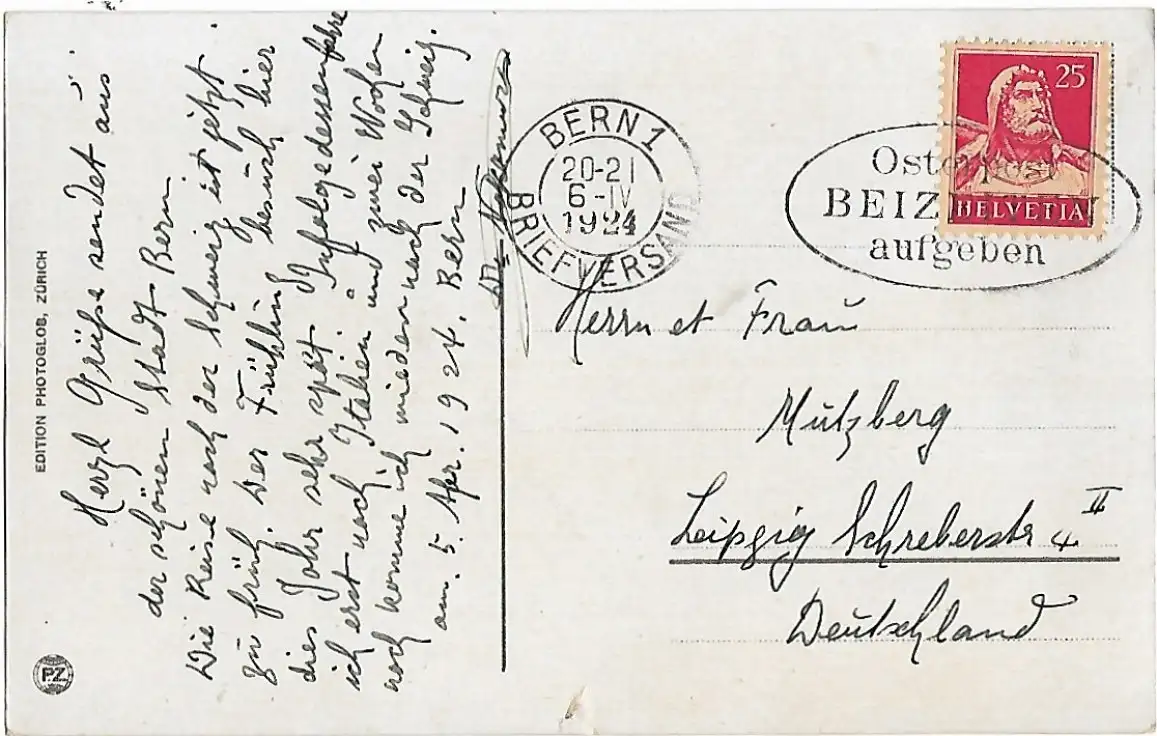 Herzl Grüße sendet aus
der schönen Stadt Bern.
Die Reise nach der Schweiz ist jetzt
zu früh. Der Frühling besuch hier
dies Jahr sehr spät. Infolgedessen fahre
ich erst nach Italien und zwei Wochen
nach komme ich wieder nach der Schweiz.
am. 5. Apr. 1924. Bern
EDITION PHOTOGLOB, ZÜRICH
PZ
BERN 1
20-21
6-IV
1924
BRIEFVERSAND
Osterpost
BEIZ
aufgeben
25
HELVETIA
Herrn et Frau
Mutzberg
Leipzig Schreberstr 4 II
Deutschland